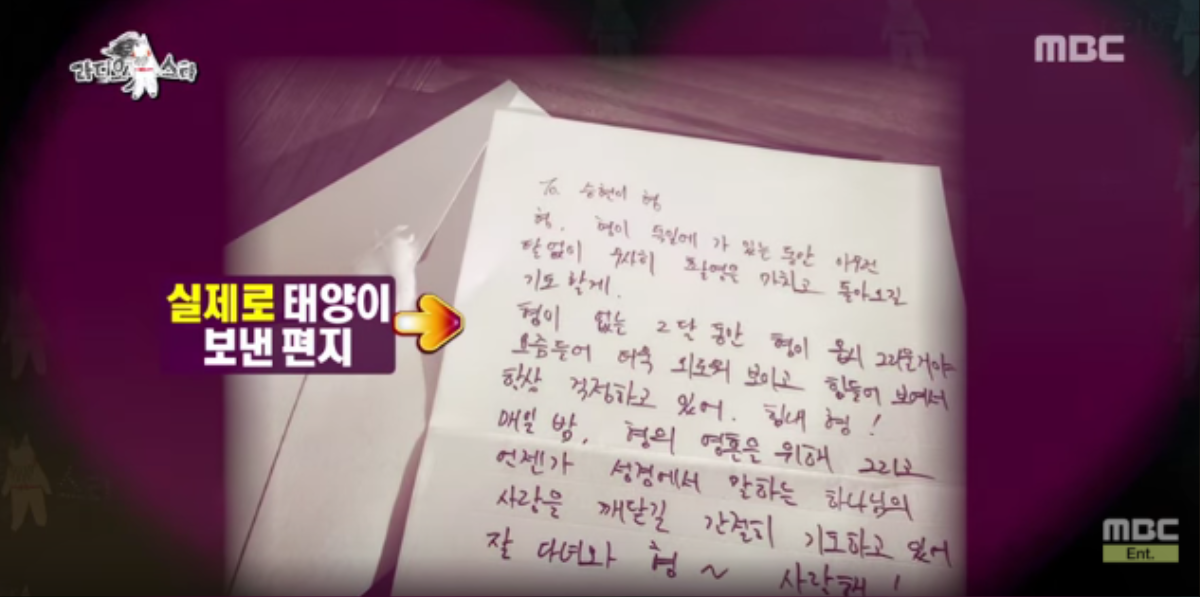 라디오스타
MBC
To. 승현이 형
형. 형이 독일에 가 있는 동안 아무런
탈 없이 무사히 촬영을 마치고 돌아오길
기도 할게.
형이 없는 2달 동안 형이 몹시 그리울거야
요즘들어 더욱 외로워 보이고 힘들어 보여서
항상 걱정하고 있어. 힘내 형!
매일 밤, 형의 영혼을 위해 그리고
언젠가 성경에서 말하는 하나님의
사랑을 깨닫길 간절히 기도하고 있어
잘 다녀와 형 ~ 사랑해!
실제로 태양이
보낸 편지
MBC
Ent.